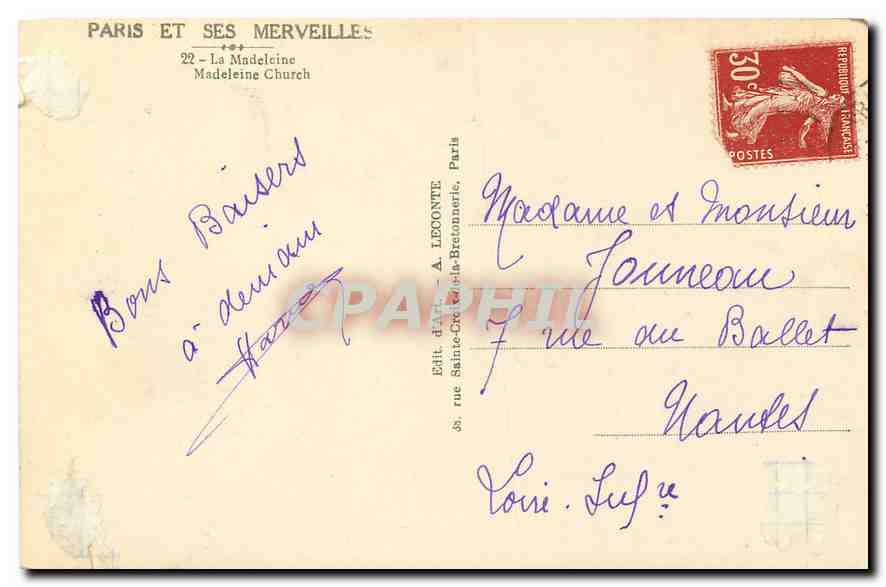 PARIS ET SES MERVEILLES
22 - La Madeleine
Madeleine Church
Bons Baisers
à demain
Edit. d'Art. A. LECONTE
38, rue Sainte-Croix-de-la-Bretonnerie, Paris
CPAPHIL
30c
REPUBLIQUE FRANÇAISE
POSTES
Madame et Monsieur
Jonneau
7 rue du Ballet
Nantes
Loire-Infre